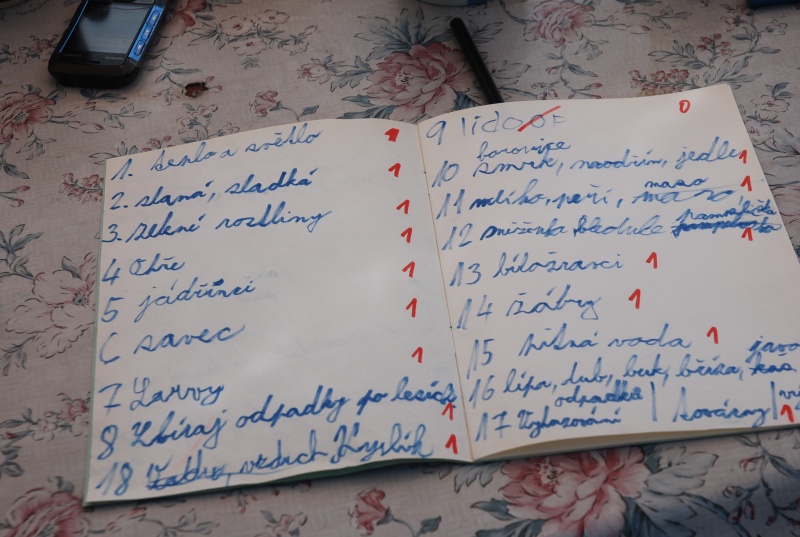 1. teplo a světlo 1
2. slaná, sladká 1
3. zelené rostliny 1
4 Ohře 1
5 jádřinci 1
6 savec 1
7 Larvy 1
8 Sbíraj odpadky po lesích 1
18 vzduch Kyslík 1
9 lidoop 0
borovice
10 smrk, modřín, jedle 1
maso
11 mlíko, peří, 1
pampeliška
12 sněženka, bledule 1
13 býložravci 1
14 žábry 1
15 pitná voda 1
javo
16 lípa, dub, buk, bříza,
odpadků
17 továrny 1